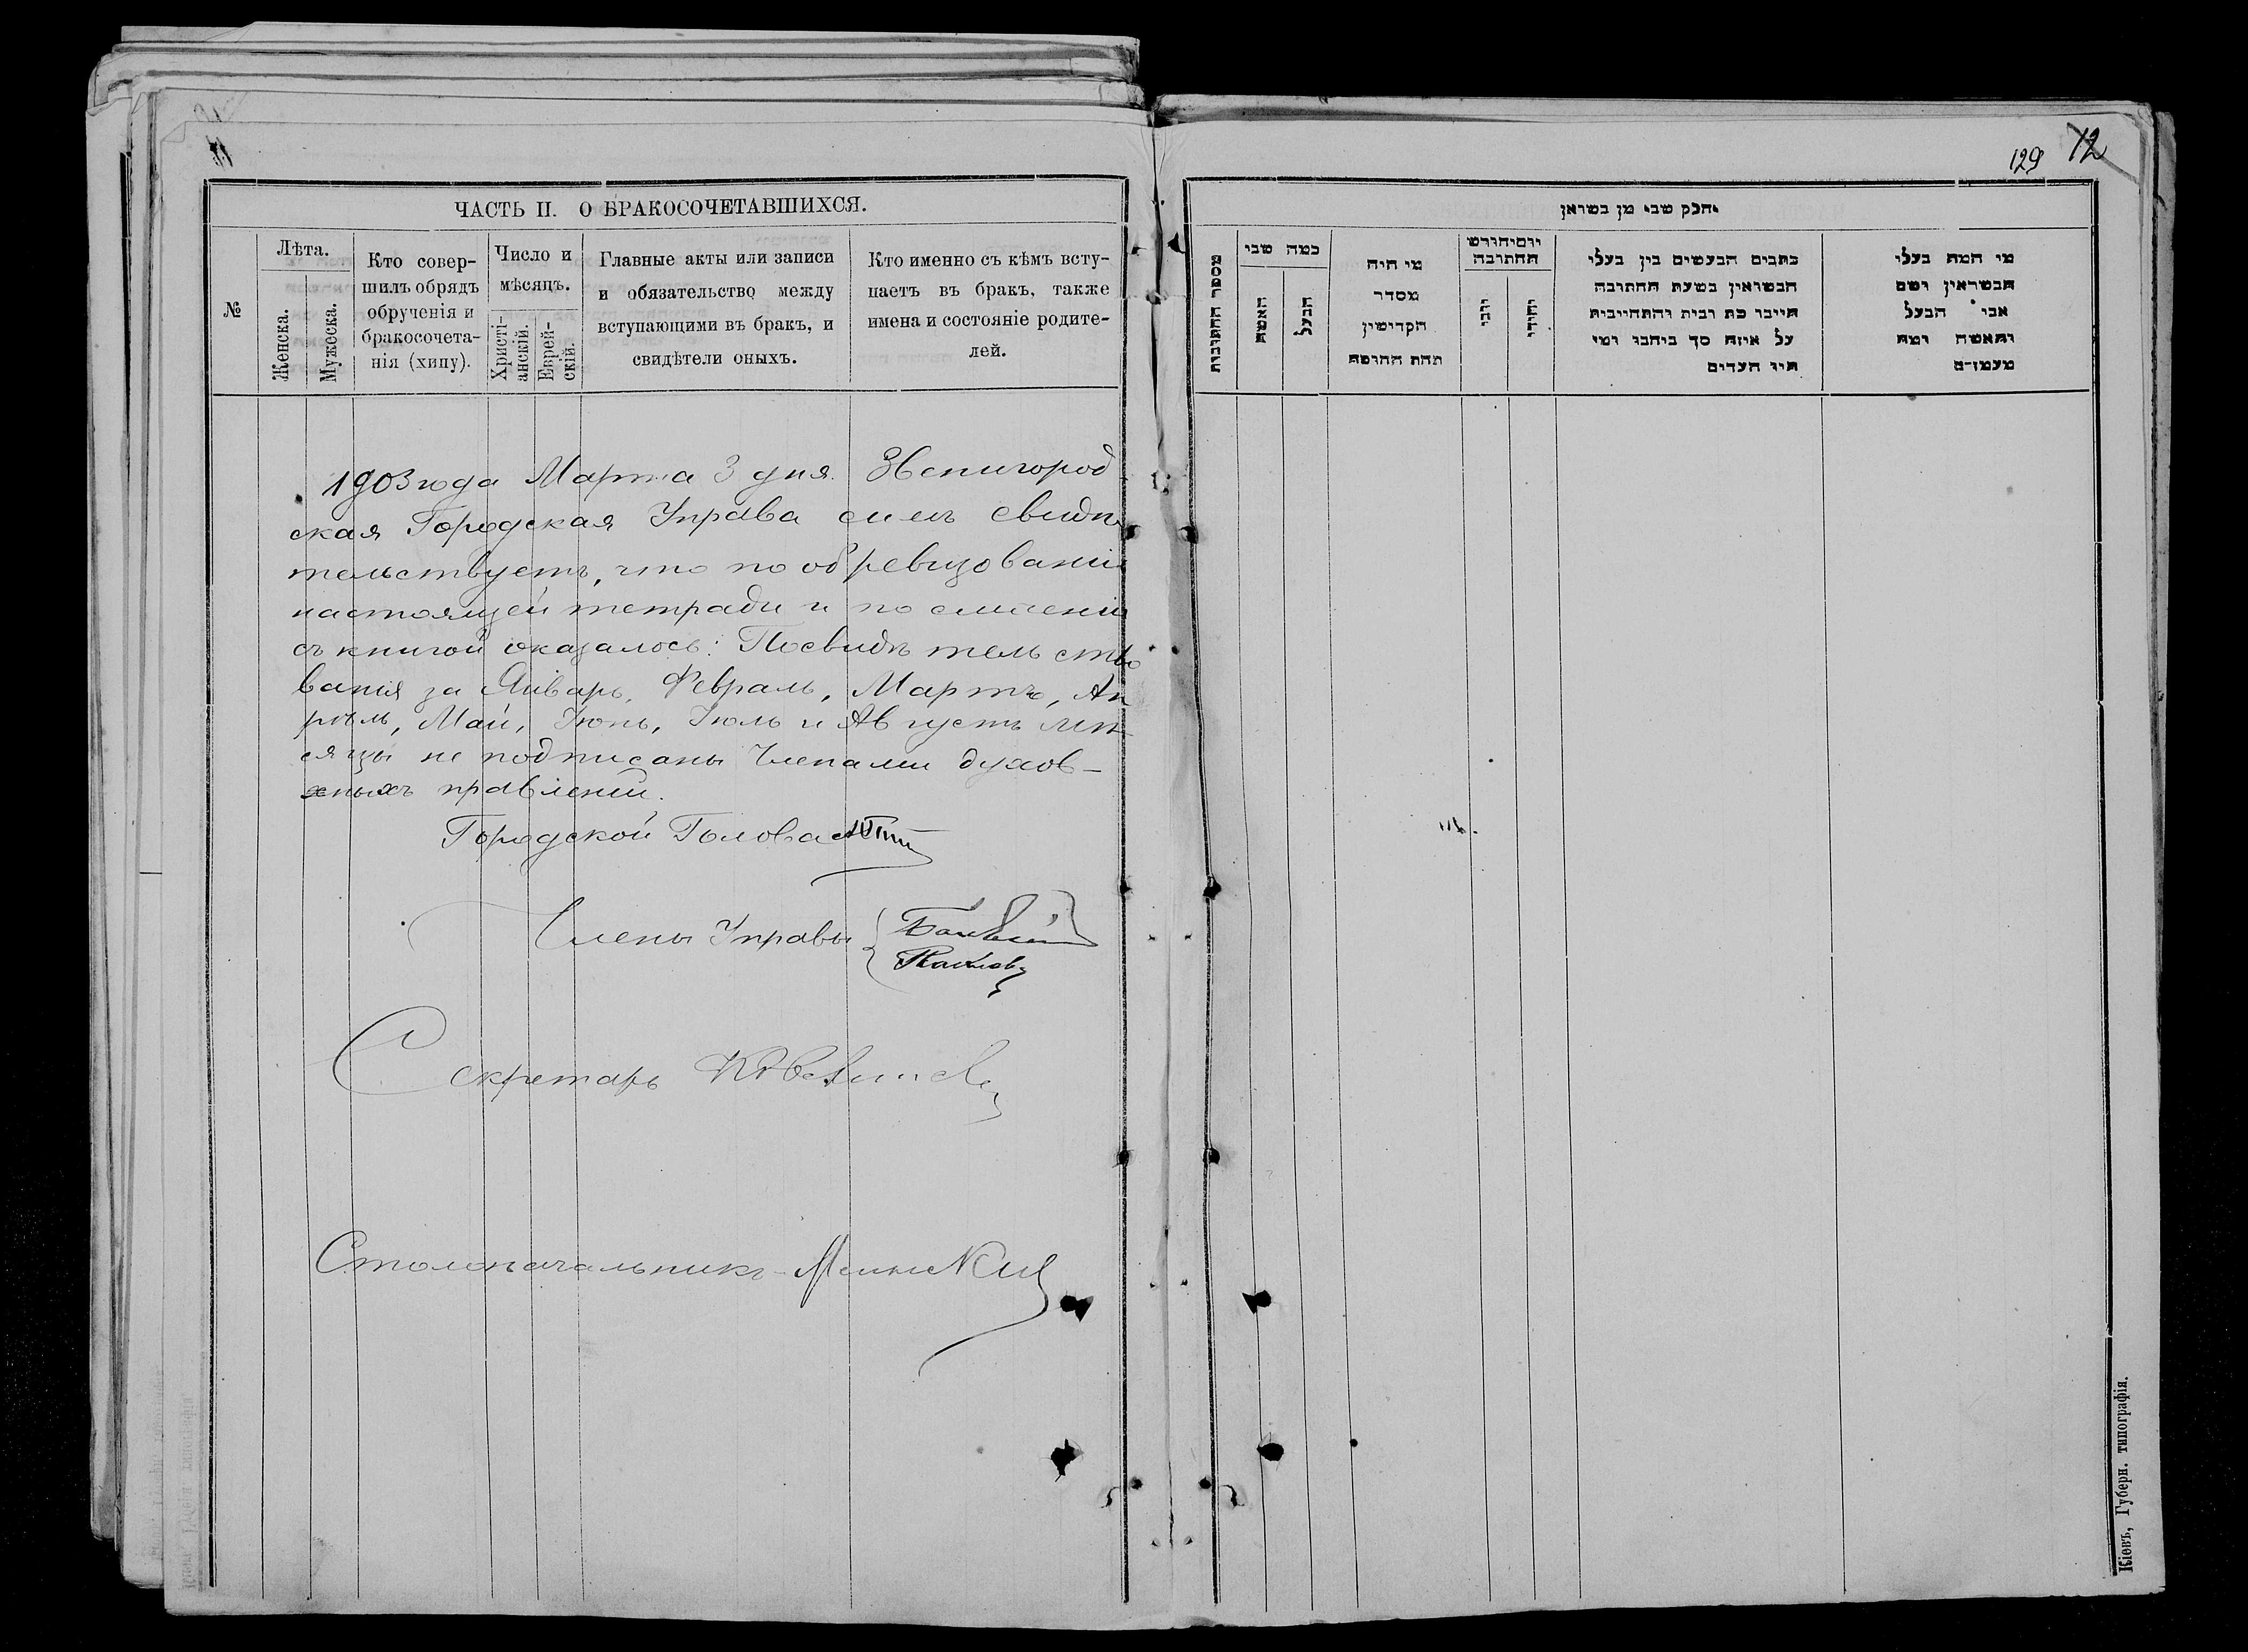 ЧАСТЬ II. О БРАКОСОЧЕТАВШИХСЯ.
№
Лѣта.
Женска.
Мужеска.
Кто совер-
шилъ обрядъ
обрученія и
бракосочета-
нія (хипу).
Число и
мѣсяцъ.
Христі-
анскій.
Еврей-
скій.
Главные акты или записи
и обязательство между
вступающими въ бракъ, и
свидѣтели оныхъ.
Кто именно съ кѣмъ всту-
паетъ въ бракъ, также
имена и состояніе родите-
лей.
1903 года Марта 3 дня Звенигород
ская Городская Управа симъ свидѣ
тельствуетъ, что по обревизованіи
настоящей тетради и по сличеніи
съ книгой оказалось: Посвидѣтельство
ванія за Январь, Февраль, Мартъ, Ап
рѣль, Май, Іюнь, Іюль и Августъ мѣ
сяцы не подписаны Членами духов-
ныхъ правленій.
Городской Голова
Члены Управы
Секретарь
Столоначальникъ
129 12
חלק שני מן בשואן
מספר החתונות
כמה שני
האשה
הבעל
מי היה
מסדר
הקדושין
תחת החופה
יום וחודש
החתונה
נוצרי
יהודי
כתבים הנעשים בין בעלי
הנשואין בשעת החתונה
היינו כת רבית והתחייבות
על איזה סך ביחבו ומי
היו העדים
מי המה בעלי
הנשואין ושם
אבי הבעל
והאשה ומה
מעמדם
Кіевъ, Губерн. типографія.